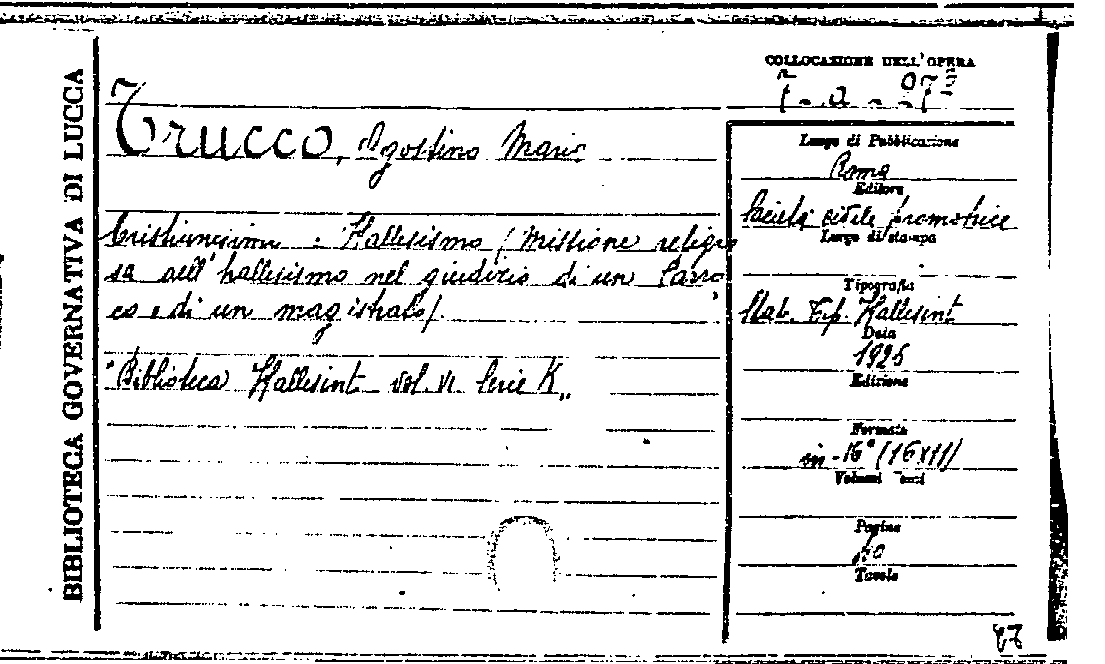 BIBLIOTECA GOVERNATIVA DI LUCCA
COLLOCAZIONE DELL'OPERA
Trucco, Agostino Mario
Cristianesimo e Hallesismo (Missione religio
sa dell'hallesismo nel giudizio di un Parro
co e di un magistrato).
"Biblioteca Hallesint vol. VI Serie K„
Luogo di Pubblicazione
Roma
Editore
Società civile promotrice
Luogo di stampa
Tipografia
Stab. Tip. Hallesint
Data
1925
Edizione
Formato
in-16° (16x11)
Volumi Tomi
Pagine
Tavole